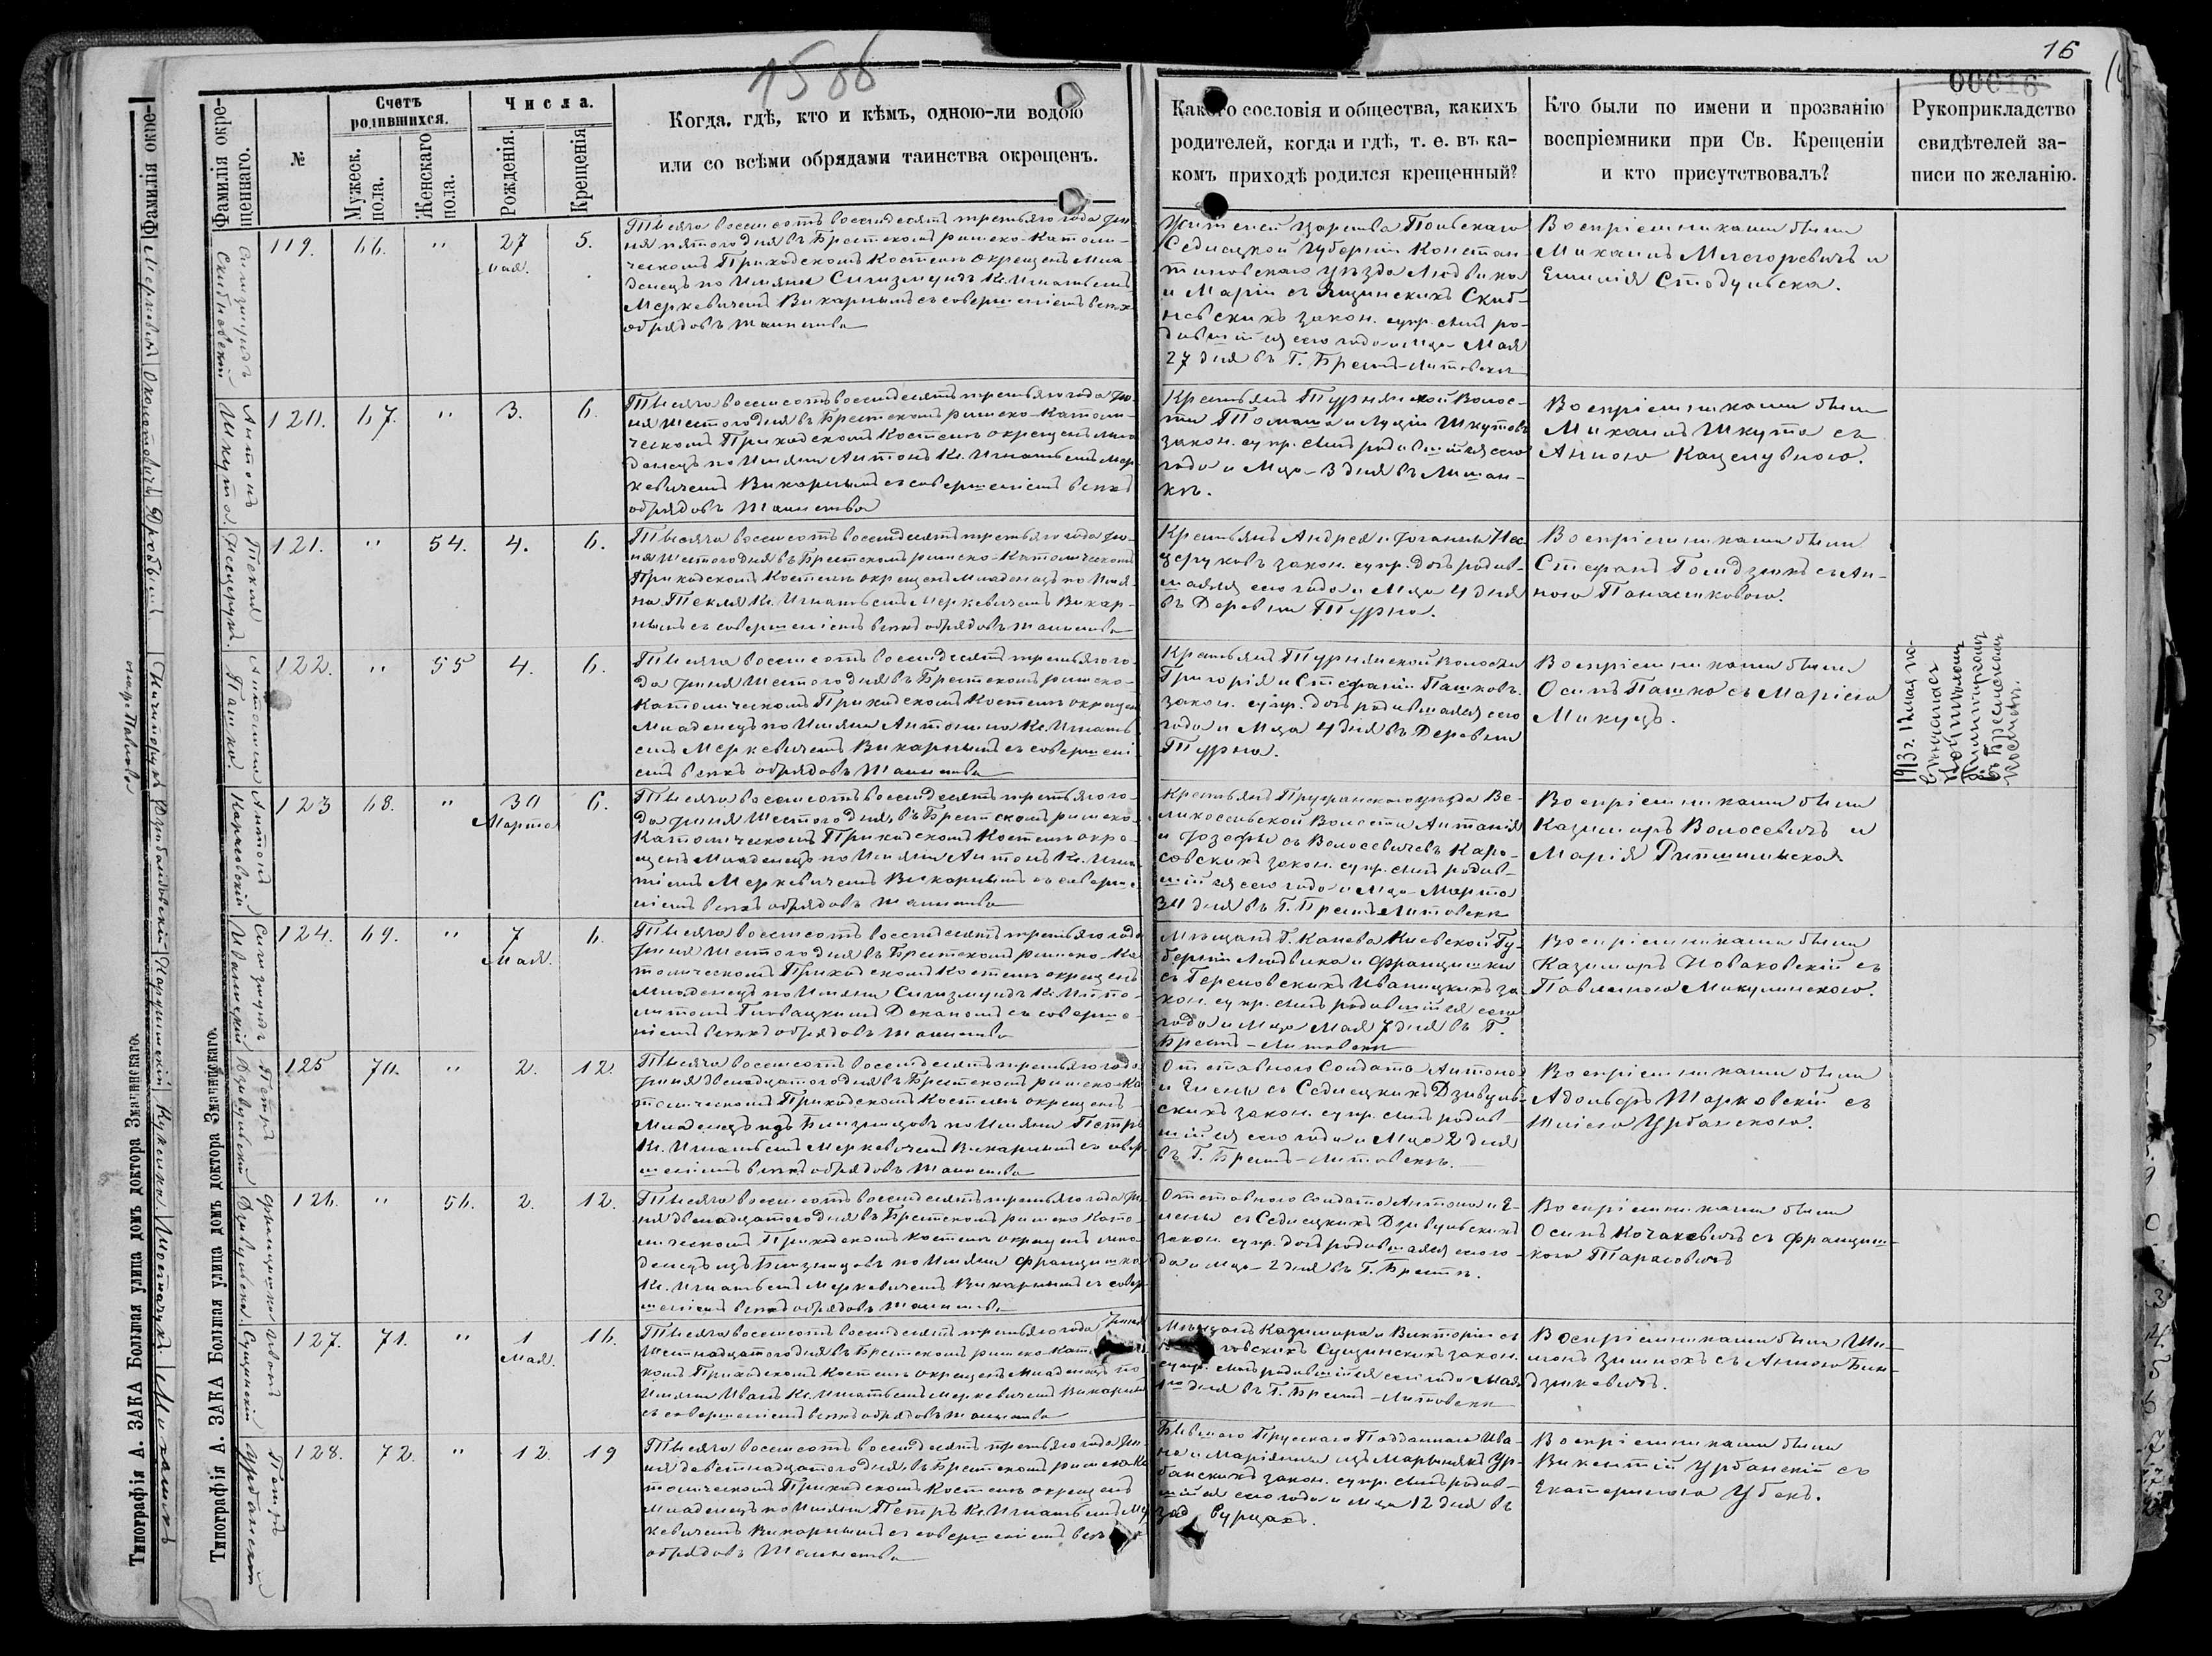 1506
16
00016
Фамилія окре-
щеннаго.
№
Счетъ
родившихся.
Мужеск.
пола.
Женскаго
пола.
Числа.
Рожденія.
Крещенія
Когда, гдѣ, кто и кѣмъ, одною-ли водою
или со всѣми обрядами таинства окрещенъ.
Какого сословія и общества, какихъ
родителей, когда и гдѣ, т. е. въ ка-
комъ приходѣ родился крещенный?
Кто были по имени и прозванію
воспріемники при Св. Крещеніи
и кто присутствовалъ?
Рукоприкладство
свидѣтелей за-
писи по желанію.
119. 66. " 27 мая. 5.
Тысяча восемсотъ восемдесятъ третьяго года Iю-
ня пятого дня въ Брестскомъ римско-Католи-
ческомъ Приходскомъ Костелѣ окрещенъ Мла-
денецъ по Имяни Сигизмундъ Кс. Игнатьемъ
Меркевичемъ Викарнымъ съ совершеніемъ всѣхъ
обрядовъ таинства
Жителей Царства Польскаго
Седлецкой Губерніи Констан-
тиновскаго уѣзда Людвика
и Маріи съ Ящинскихъ Скиб-
невскихъ закон. супр. сынъ ро-
дившійся сего года и М-ца Мая
27 дня въ Г. Брестъ-Литовскѣ
Воспріемниками были
Михаилъ Мечгоревичъ и
Емилія Стодульска.
Антонъ
Шкута.
120. 67. " 3. 6.
Тысяча восемсотъ восемдесятъ третьяго года Iю-
ня шестого дня въ Брестскомъ римско-Католи-
ческомъ Приходскомъ Костелѣ окрещенъ Мла
денецъ по Имяни Антонъ Кс. Игнатьемъ Мер-
кевичемъ Викарнымъ съ совершеніемъ всѣхъ
обрядовъ таинства
Крестьянъ Турнянской Волос-
ти Томаша и Луціи Шкутовъ
закон. супр. сынъ родившійся сего
года и М-ца 3 дня въ Лышан-
кѣ.
Воспріемниками были
Михаилъ Шкута съ
Анною Кацелувною.
Текля
Несцерукъ.
121. " 54. 4. 6.
Тысяча восемсотъ восемдесятъ третьяго года Iю-
ня Шестого дня въ Брестскомъ римско-Католическомъ
Приходскомъ Костелѣ окрещенъ Младенецъ по Имя-
ни Текля Кс. Игнатьемъ Меркевичемъ Викар-
нымъ съ совершеніемъ всѣхъ обрядовъ таинства
въ Деревни Турна.
Воспріемниками были
Стефанъ Гомдзюкъ съ Ан-
ною Панасюковою.
Антонина
Пашко.
122. " 55 4. 6.
Тысяча восемсотъ восемдесятъ третьяго го-
да Iюня Шестого дня въ Брестскомъ римско-
Католическомъ Приходскомъ Костелѣ окрещенъ
Младенецъ по Имяни Антонина Кс. Игнать-
емъ Меркевичемъ Викарнымъ съ совершені-
емъ всѣхъ обрядовъ таинства
Крестьянъ Турнянской Волости
Григорія и Стефаніи Пашковъ
закон. супр. дочь родившаяся сего
года и М-ца 4 дня въ Деревни
Турна.
Воспріемниками были
Осипъ Пашко съ Маріею
Микуцъ.
Антонъ
Карасовскій
123 68. " 30 Марта 6.
Тысяча восемсотъ восемдесятъ третьяго го-
да Iюня Шестого дня, въ Брестскомъ римско-
Католическомъ Приходскомъ Костелѣ окре-
щенъ Младенецъ по Имяни Антонъ Кс. Игна-
тіемъ Меркевичемъ Викарнымъ съ соверше-
ніемъ всѣхъ обрядовъ таинства
Крестьянъ Пружанскаго уѣзда Ве-
ликосельской Волости Антонія
и Iозефы съ Волосевичевъ Кара-
совскихъ закон. супр. сынъ родив-
шійся сего года и М-ца Марта
30 дня въ Г. Брестъ-Литовскѣ
Воспріемниками были
Казимиръ Волосевичъ и
Марія
Сигизмундъ
Иваницкій
124. 69. " 7 Мая. 6.
Тысяча восемсотъ восемдесятъ третьяго года
Iюня Шестого дня въ Брестскомъ римско-Ка
толическомъ Приходскомъ Костелѣ окрещенъ
Младенецъ по Имяни Сигизмундъ Кс. Иппо-
литомъ Гловацкимъ Деканомъ съ соверше-
ніемъ всѣхъ обрядовъ таинства
Мѣщанъ Г. Канева Кіевской Гу-
берніи Людвика и Францишки
съ Герсновскихъ Иваницкихъ за-
кон. супр. сынъ родившійся сего
года и М-ца Мая 7 дня въ Г.
Брестъ-Литовскѣ
Воспріемниками были
Казимиръ Новаковскій съ
Павлиною Микулинскою.
Петръ
Дзивульскій
125 70. " 2. 12.
Тысяча восемсотъ восемдесятъ третьяго года
Iюня двенадцатого дня въ Брестскомъ римско-Ка
толическомъ Приходскомъ Костелѣ окрещенъ
Младенецъ изъ Близнецовъ по Имяни Петръ
Кс. Игнатьемъ Меркевичемъ Викарнымъ съ совер-
шеніемъ всѣхъ обрядовъ таинства
Отставного Солдата Антона
и Елены съ Седлецкихъ Дзивуль-
скихъ закон. супр. сынъ родив-
шійся сего года и М-ца 2 дня
въ Г. Брестъ-Литовскѣ.
Воспріемниками были
Адольфъ Шарковскій съ
Урбанскою.
Францишка
Дзивульска.
126. " 56. 2. 12.
Тысяча восемсотъ восемдесятъ третьяго года Iю
ня двенадцатого дня въ Брестскомъ римско Като-
лическомъ Приходскомъ Костелѣ окрещенъ мла-
денецъ изъ Близнецовъ по Имяни Францишка
Кс. Игнатьемъ Меркевичемъ Викарнымъ съ совер-
шеніемъ всѣхъ обрядовъ таинства
Отставного Солдата Антона и Е-
лены съ Седлецкихъ Дзивульскихъ
закон. супр. дочь родившаяся сего го-
да и М-ца 2 дня въ Г. Брестѣ.
Воспріемниками были
Осипъ Кочаковичъ съ Францишь-
кою Тарасовичъ
Сущинскій
127. 71. " 1 Мая. 16.
Тысяча восемсотъ восемдесятъ третьяго года Iюня
Шестнадцатого дня въ Брестскомъ римско-Кат
комъ Приходскомъ Костелѣ окрещенъ Младенецъ по
Имяни Иванъ Кс. Игнатьемъ Меркевичемъ Викарным
съ совершеніемъ всѣхъ обрядовъ таинства
Мѣщанъ Казимира и Викторіи съ
говскихъ Сущинскихъ закон.
супр. сынъ родившійся сего года Мая
1го дня въ Г. Брестъ-Литовскѣ
Воспріемниками были
съ Анною Бин-
дзикевичъ.
Петръ
Урбанскій
128. 72. " 12. 19
Тысяча восемсотъ восемдесятъ третьяго года Iю-
ня девятнадцатого дня, въ Брестскомъ римско-Ка
толическомъ Приходскомъ Костелѣ окрещенъ
Младенецъ по Имяни Петръ Кс. Игнатьемъ Мер
кевичемъ Викарнымъ съ совершеніемъ всѣ
обрядовъ таинства
Бывшаго Прусскаго Подданнаго Ива-
на и Маріянны изъ Марынякъ Ур-
банскихъ закон. супр. сынъ родив-
шійся сего года и М-ца 12 дня въ
Воспріемниками были
Викентій Урбанскій съ
Екатериною Убекъ.
Типографія А. ЗАКА Большая улица домъ доктора Знаминскаго.
Типографія А. ЗАКА Большая улица домъ доктора Знаминскаго.